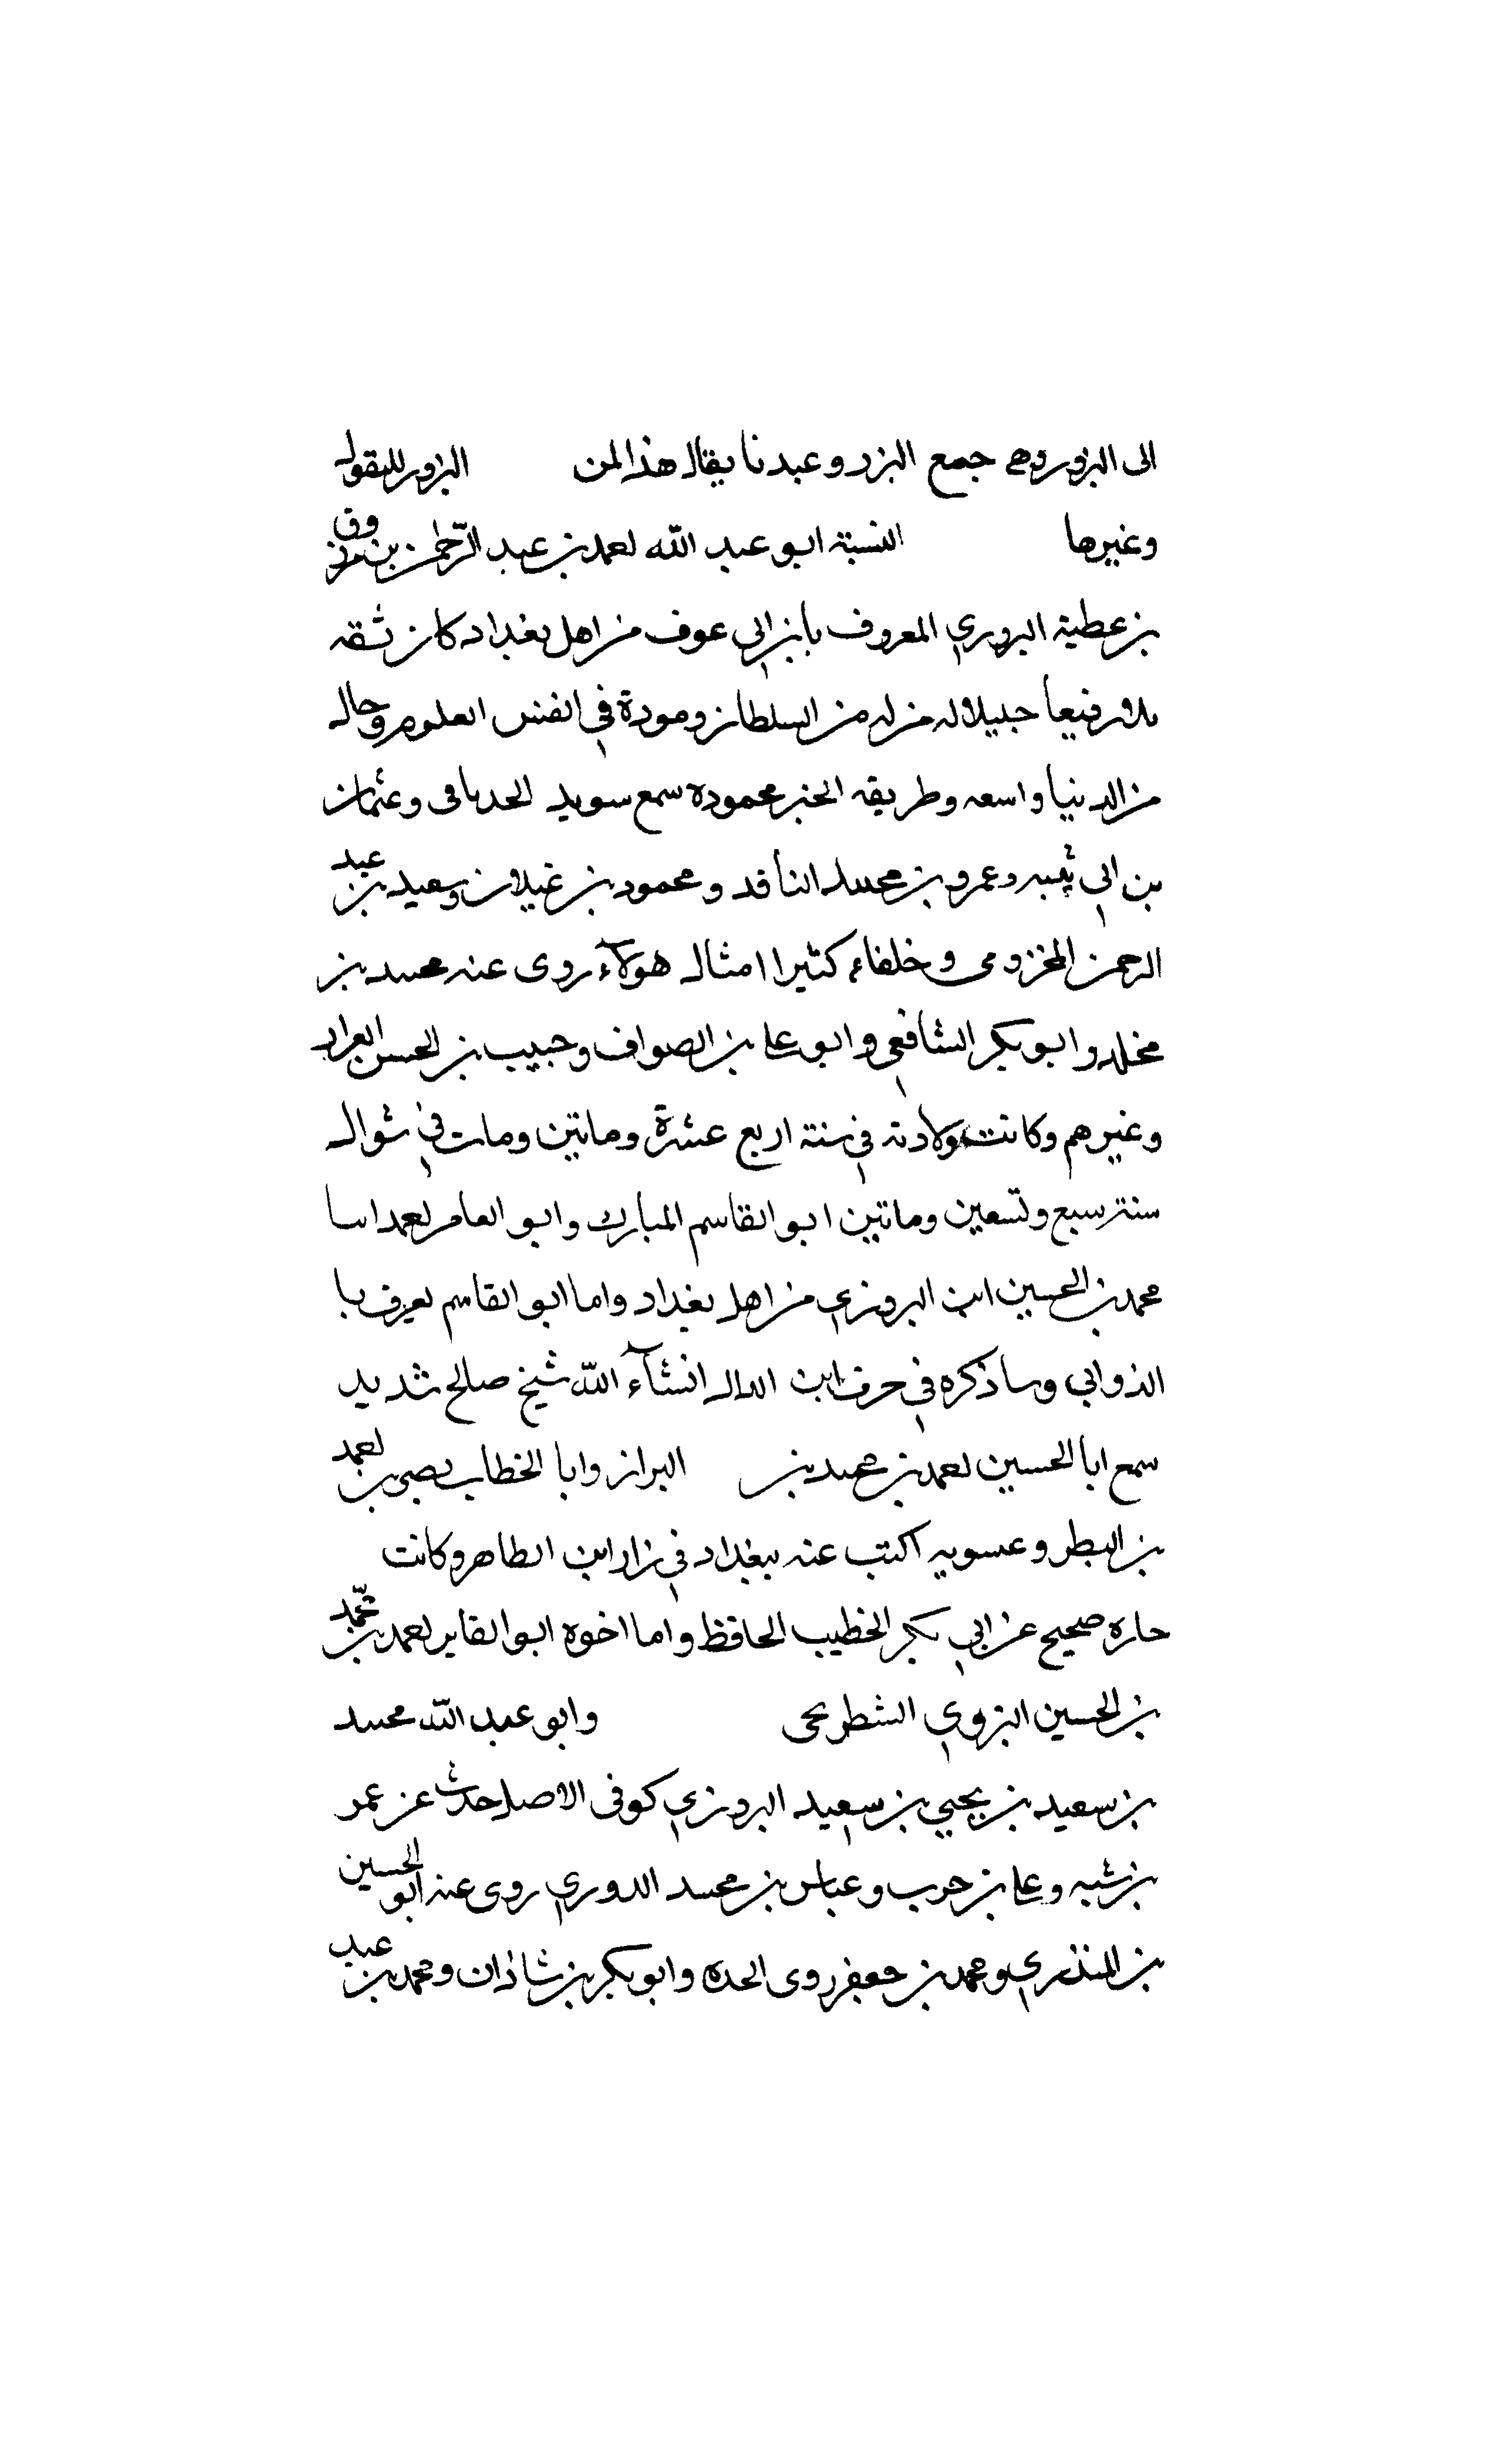 الى البزور وهي جمع البزر وعندنا يقال هذا لمن البزور للبقول
وغيرها النسبة ابو عبد الله احمد بن عبد الرحمن بن مرزوق
بن عطية البزوري المعروف بابن ابي عوف من اهل بغداد كان ثقه
رفيعا جليلا له منزله من السلطان ومودة في انفس العلوم وحال
من الدنيا واسعه وطريقه الخير محموده سمع سويد وعثمان
بن ابي شيبه وعمرو بن محمد الناقد ومحمود بن غيلان وسعيد بن عبد
الرحمن المخزومى وخلفاء كثيرا امثال هولآء روى عنه محمد بن
مخلد وابو بكر الشافعي وابو على بن الصواف وحبيب بن الحسن
وغيرهم وكانت ولادته في سنة اربع عشرة وماتين ومات في شوال
سنة سبع وتسعين وماتين ابو القاسم المبارك وابو احمد ابنا
محمد بن الحسين ابن البزوري من اهل بغداد واما ابو القاسم يعرف با
الذوابي وساذكره في حرف ابن الدال انشآء الله شيخ صالح شديد
سمع ابا الحسين احمد بن محمد بن البزاز وابا الخطاب احمد
بن البطر وعسويه اكتب عنه ببغداد في ابن الطاهر وكانت
صحيح عن ابي بكر الخطيب الحافظ واما اخوه ابو احمد بن محمد
بن الحسين البزوي الشطرنجى وابو عبد الله محمد
بن سعيد بن يحيي بن سعيد البزوري كوفى الاصل حدث عن عمر
بن شبه وعلى بن حرب وعباس بن محمد الدوري روى عنه ابو الحسين
بن المنذري ومحمد بن جعفر روى وابو بكر بن شاذان ومحمد بن عبيد